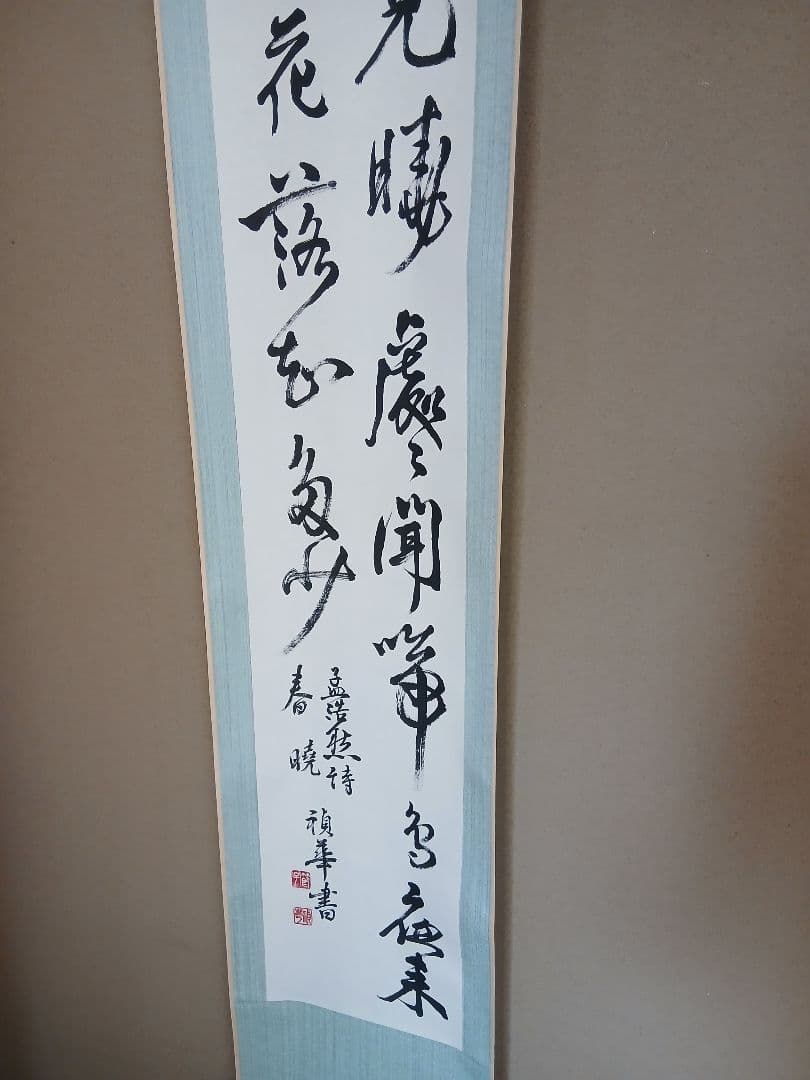 曉處々聞啼鳥夜来
花落知多少
孟浩然詩
春曉
禎華書